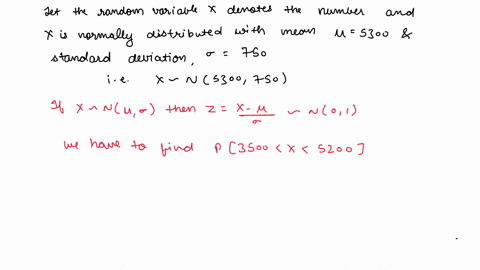 Let the random variable X denotes the number and
X is normally distributed with mean μ = 5300 &
standard deviation, σ = 750
i.e. X ~ N(5300, 750)
If X ~ N(μ, σ) then Z = (X - μ)/σ ~ N(0, 1)
we have to find P[3500 < X < 5200]